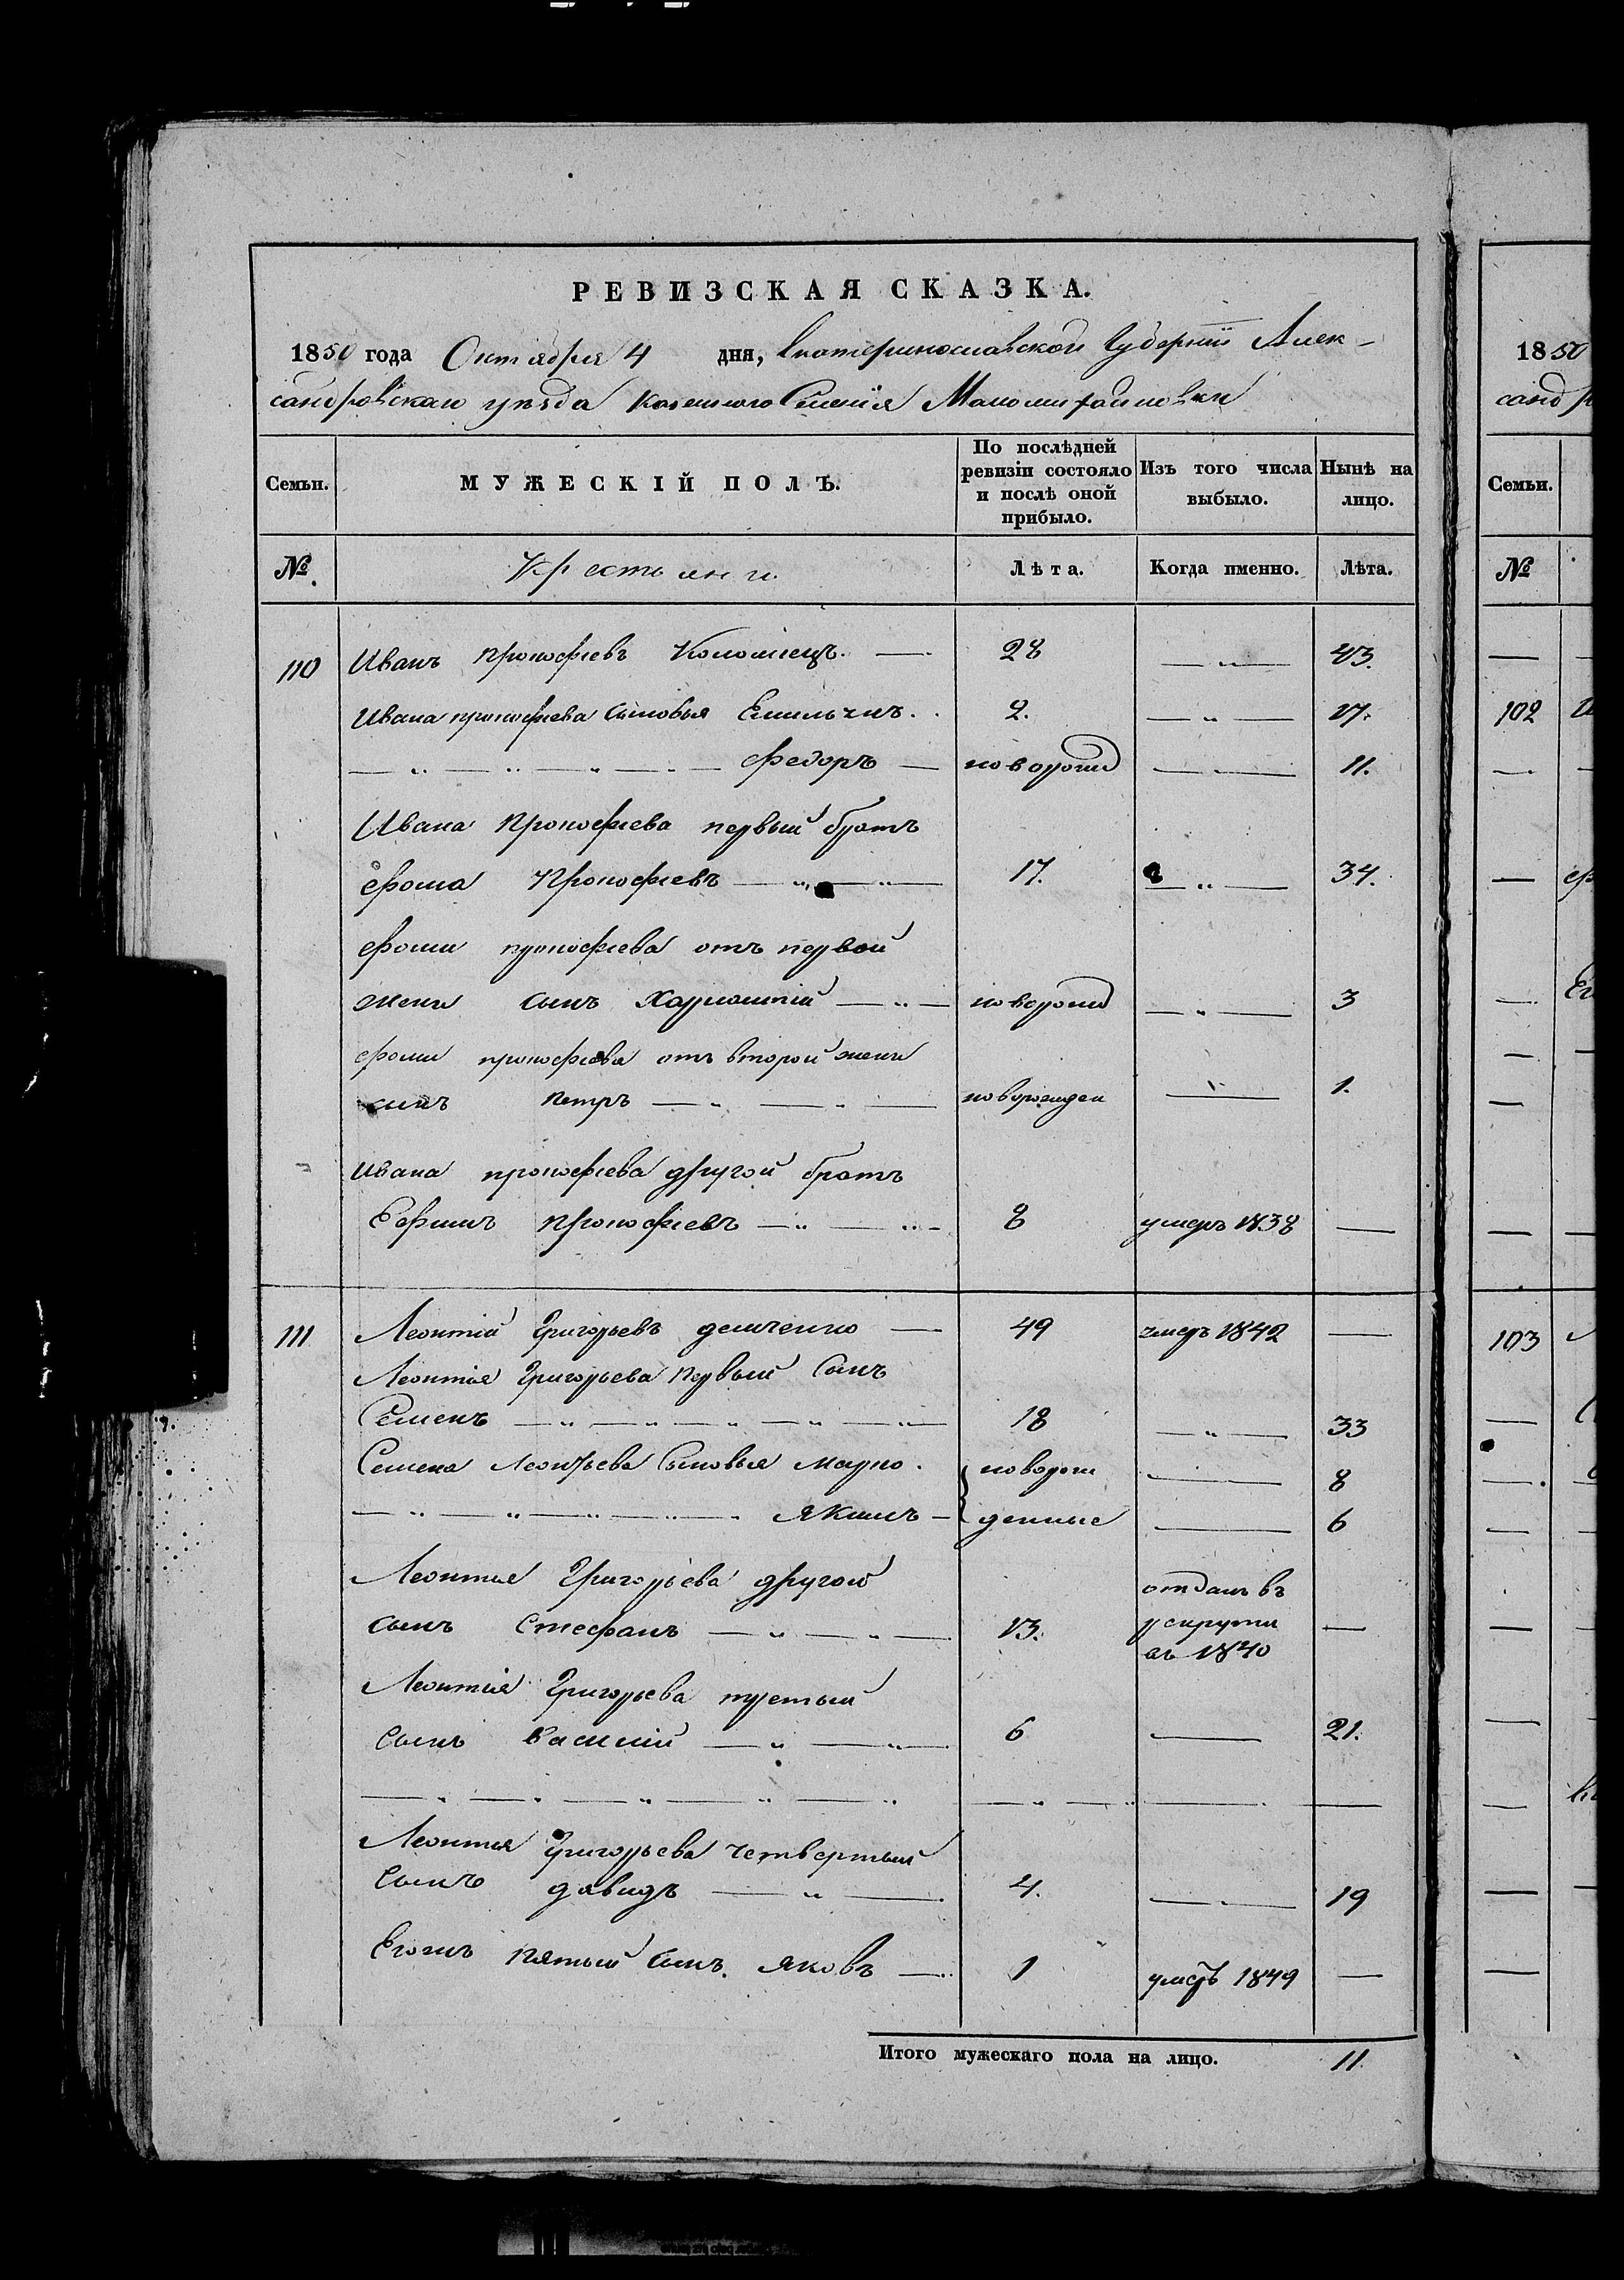 РЕВИЗСКАЯ СКАЗКА.
1850 года Октября 4 дня, Екатеринославской Губернiи Алек-
сандровскаго уѣзда Казенного Селенiя Маломихайловки
Семьи.
МУЖЕСКIЙ ПОЛЪ.
По послѣдней ревизiи состояло и послѣ оной прибыло.
Изъ того числа выбыло.
Нынѣ на лицо.
№ Крестьяне. Лѣта. Когда именно. Лѣта.
110 Иванъ Прокофьевъ Коломiецъ. — 28 — " — 43.
Ивана прокофьева Сыновья Емельянъ. 2. — " — 17.
— " — " — " — Федоръ — новорожд — 11.
Ивана Прокофьева первый братъ
фома Прокофьевъ — " — " — 17. — " — 34.
фомы прокофьева отъ первой
жены сынъ Харлампiй — " — новорожд — " — 3
фомы прокофьева отъ второй жены
сынъ петръ — " — " — новорожден — " — 1.
Ивана прокофьева другой братъ
прокофьевъ — " — " — 8 умеръ 1838 —
111 Леонтiй Григорьевъ демченко — 49 умеръ 1842 —
Леонтiя Григорьева первый Сынъ
Семенъ — " — " — " — " — 18 — " — 33
Семена Леонтьева Сыновья марко. новорож — 8
— " — " — " — " якимъ — денные — 6
Леонтiя Григорьева другой отданъ въ
сынъ Стефанъ — " — " — 13. рекруты —
въ 1840
Леонтiя Григорьева третый
сынъ Василiй — " — " — 6 — 21.
— " — " — " — " — " — " — " — —
Леонтiя Григорьева четвертый
Сынъ давидъ — " — 4. — 19
Егожъ пятый Сынъ. яковъ — 1 умеръ 1849 —
Итого мужескаго пола на лицо. 11
1850
санд
Семьи.
№
102
103